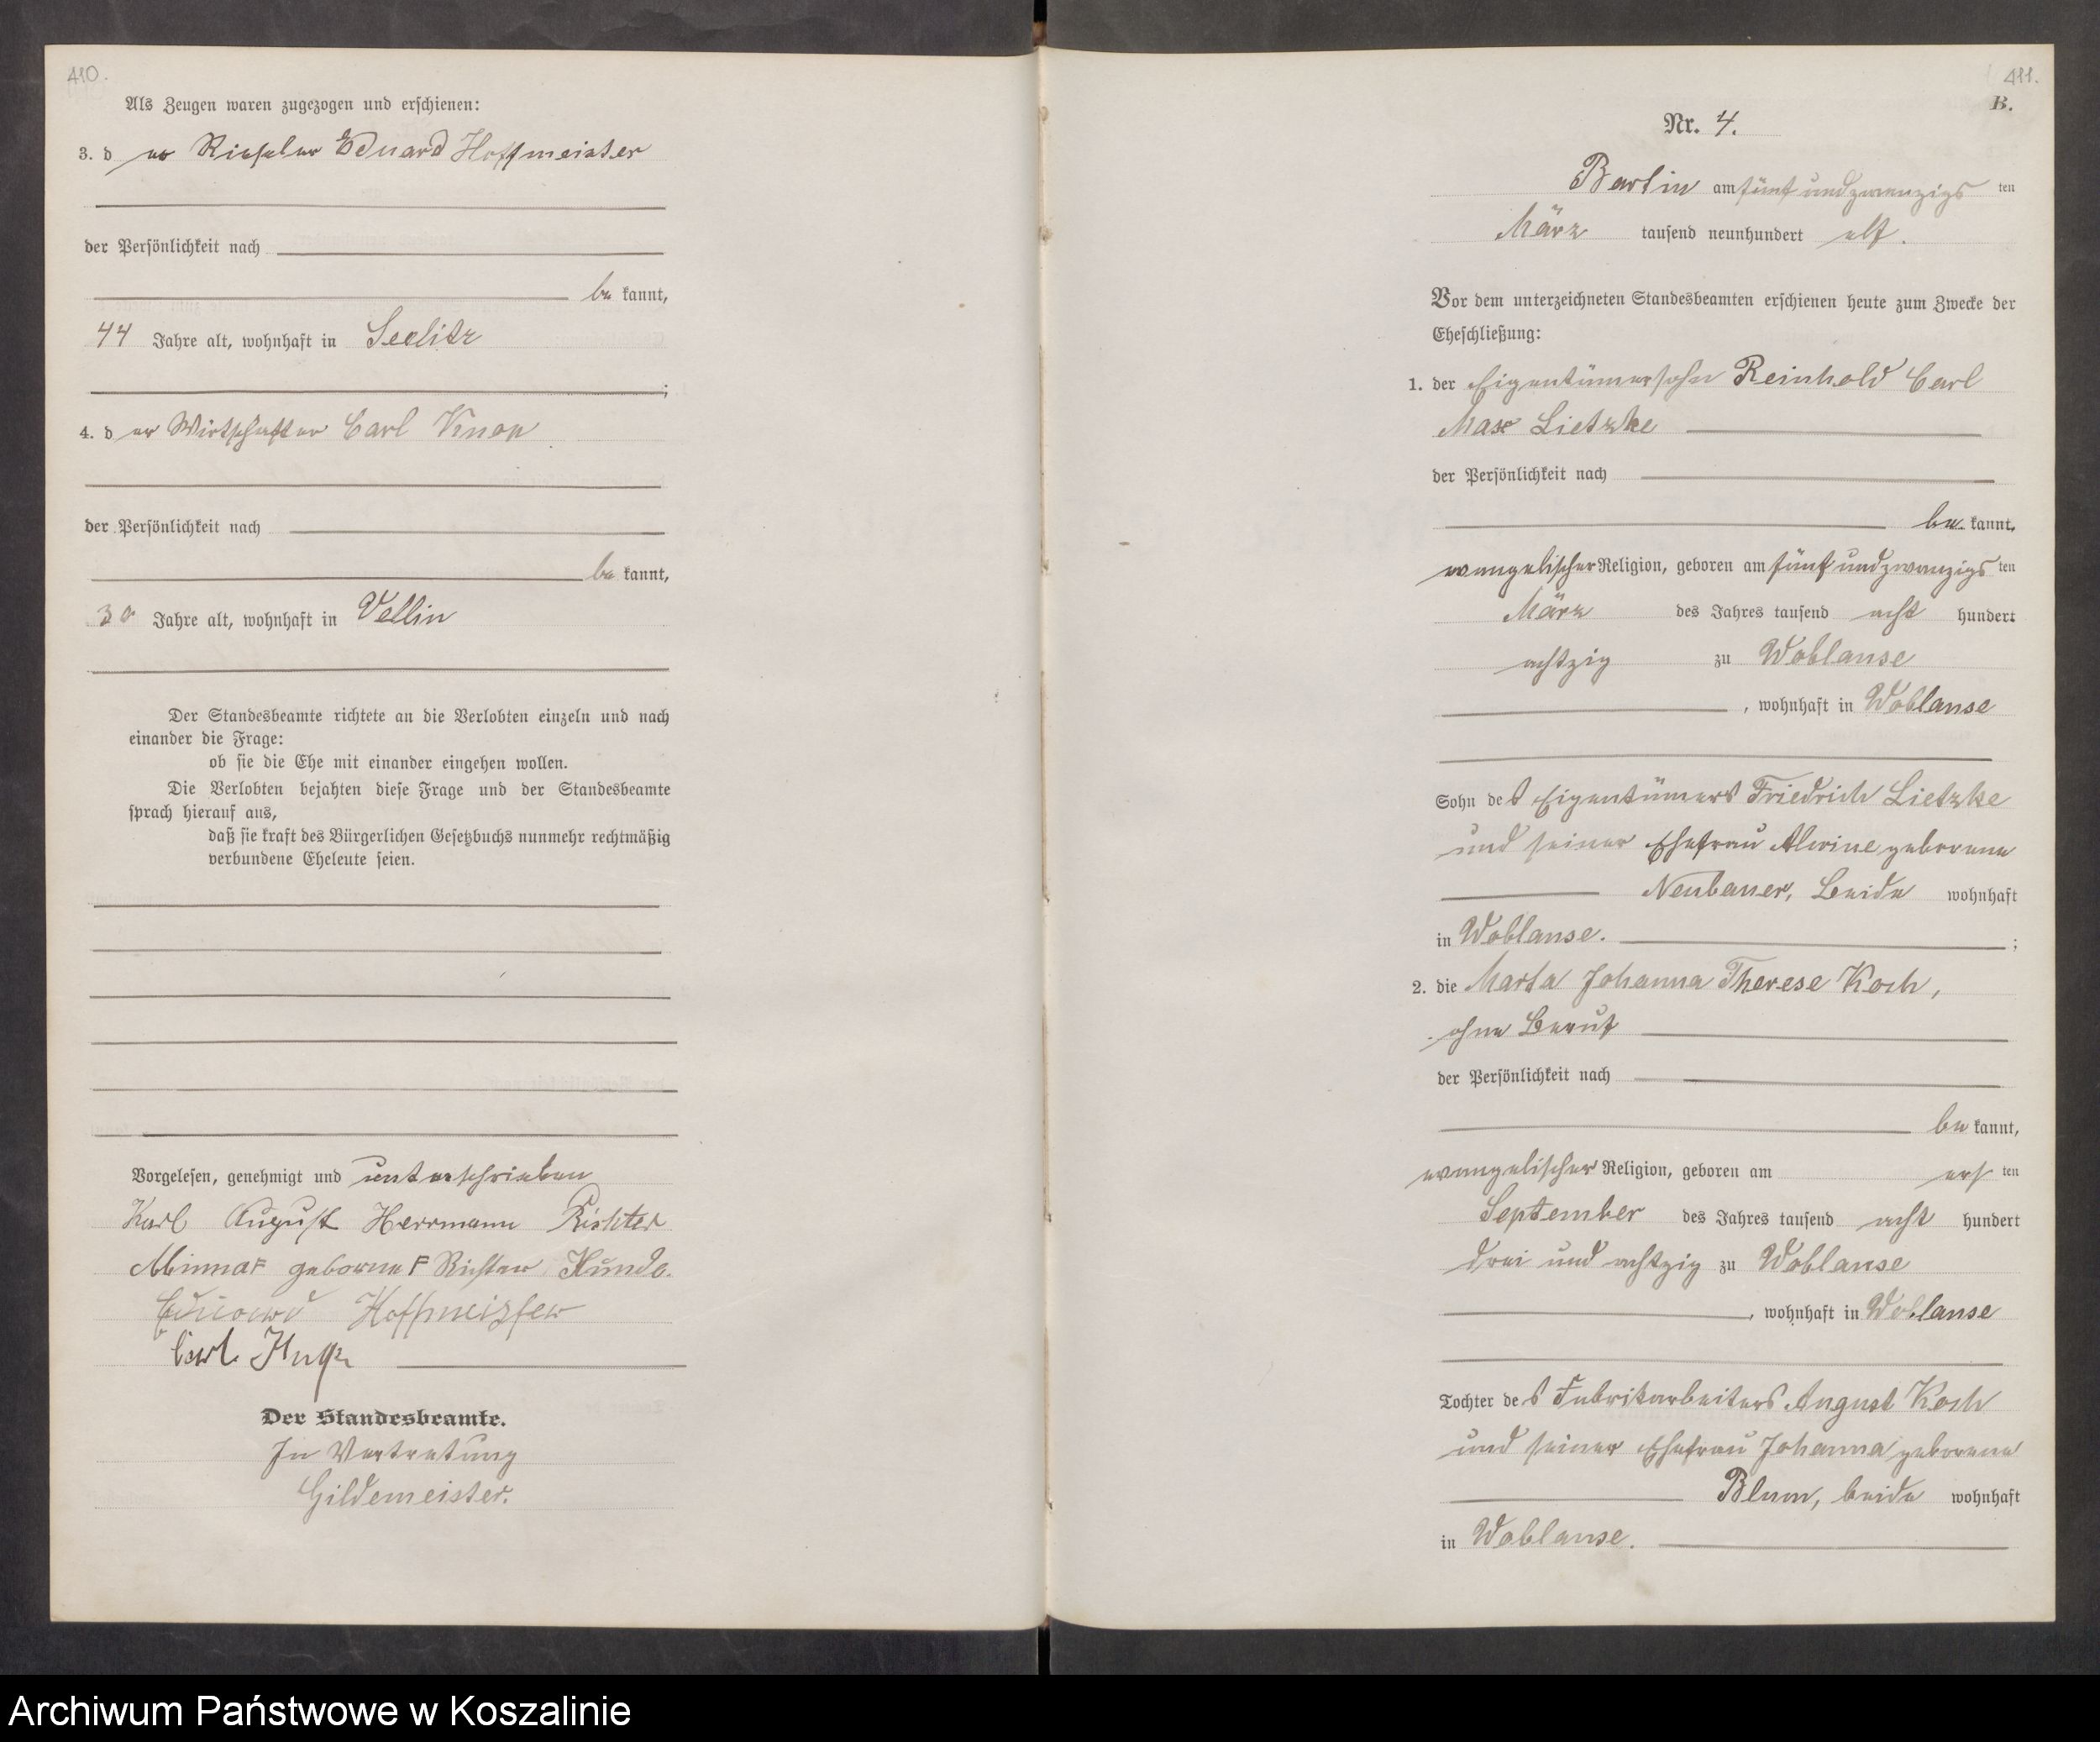 410.
Als Zeugen waren zugezogen und erschienen:
3. der Eduard Hoffmeister
der Persönlichkeit nach
be kannt,
44 Jahre alt, wohnhaft in Seelitz
;
4. der Wirtschafter Carl Knop
der Persönlichkeit nach
be kannt,
30 Jahre alt, wohnhaft in Vellin
Der Standesbeamte richtete an die Verlobten einzeln und nach
einander die Frage:
ob sie die Ehe mit einander eingehen wollen.
Die Verlobten bejahten diese Frage und der Standesbeamte
sprach hierauf aus,
daß sie kraft des Bürgerlichen Gesetzbuchs nunmehr rechtmäßig
verbundene Eheleute seien.
Vorgelesen, genehmigt und unterschrieben
Karl August Herrmann Richter
Minna geborne Richter
Eduard Hoffmeister
Carl
Der Standesbeamte.
In Vertretung
Gildemeister.
411.
B.
Nr. 4.
Bartin am fünf und zwanzigs ten
März tausend neunhundert elf.
Vor dem unterzeichneten Standesbeamten erschienen heute zum Zwecke der
Eheschließung:
1. der Eigentümersohn Reinhold Carl
Max Lietzke
der Persönlichkeit nach
be kannt,
evangelischer Religion, geboren am fünf und zwanzigs ten
März des Jahres tausend acht hundert
achtzig zu Woblanse
, wohnhaft in Woblanse
Sohn des Eigentümers Friedrich Lietzke
und seiner Ehefrau Alwine geborene
Neubauer, beide wohnhaft
in Woblanse. ;
2. die Marta Johanna Therese Koch,
ohne Beruf
der Persönlichkeit nach
be kannt,
evangelischer Religion, geboren am ers ten
September des Jahres tausend acht hundert
drei und achtzig zu Woblanse
, wohnhaft in Woblanse
Tochter des Fabrikarbeiters August Koch
und seiner Ehefrau Johanna geborene
Blum, beide wohnhaft
in Woblanse.
Archiwum Państwowe w Koszalinie